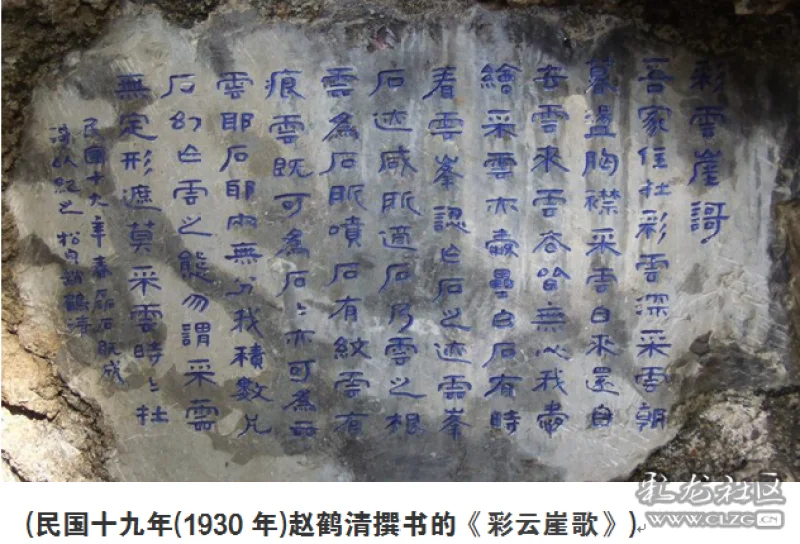 彩雲崖謌
吾家住在彩雲深采雲朝
暮盪胸襟采雲自來還自
去雲來雲去皆無心我嘗
繪采雲亦壘白石有時
看雲峯認作石之迹雲峯
石迹咸所適石乃雲之根
雲為石脈噴石有紋雲有
痕雲既可為石〻亦可為雲
雲耶石耶內無分我積數
石幻作雲之態勿謂采雲
無定形遮莫采雲時〻在
民国十九年春石既成
謌以紀之 松泉趙鶴清
(民国十九年(1930 年)赵鹤清撰书的《彩云崖歌》)
龙社区
WWW.CLZG.CN